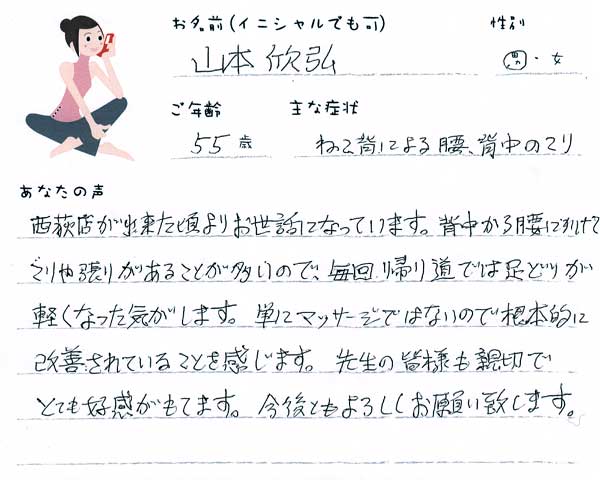 お名前(イニシャルでも可) 性別
山本欣弘 男・女
ご年齢 主な症状
55歳 ねこ背による腰、背中のこり
あなたの声
西荻店が出来た頃よりお世話になっています。背中から腰にかけて
こりや張りがあることが多いので、毎回帰り道では足どりが
軽くなった気がします。単にマッサージではないので根本的に
改善されていることを感じます。先生の皆様も親切で
とても好感がもてます。今後ともよろしくお願い致します。